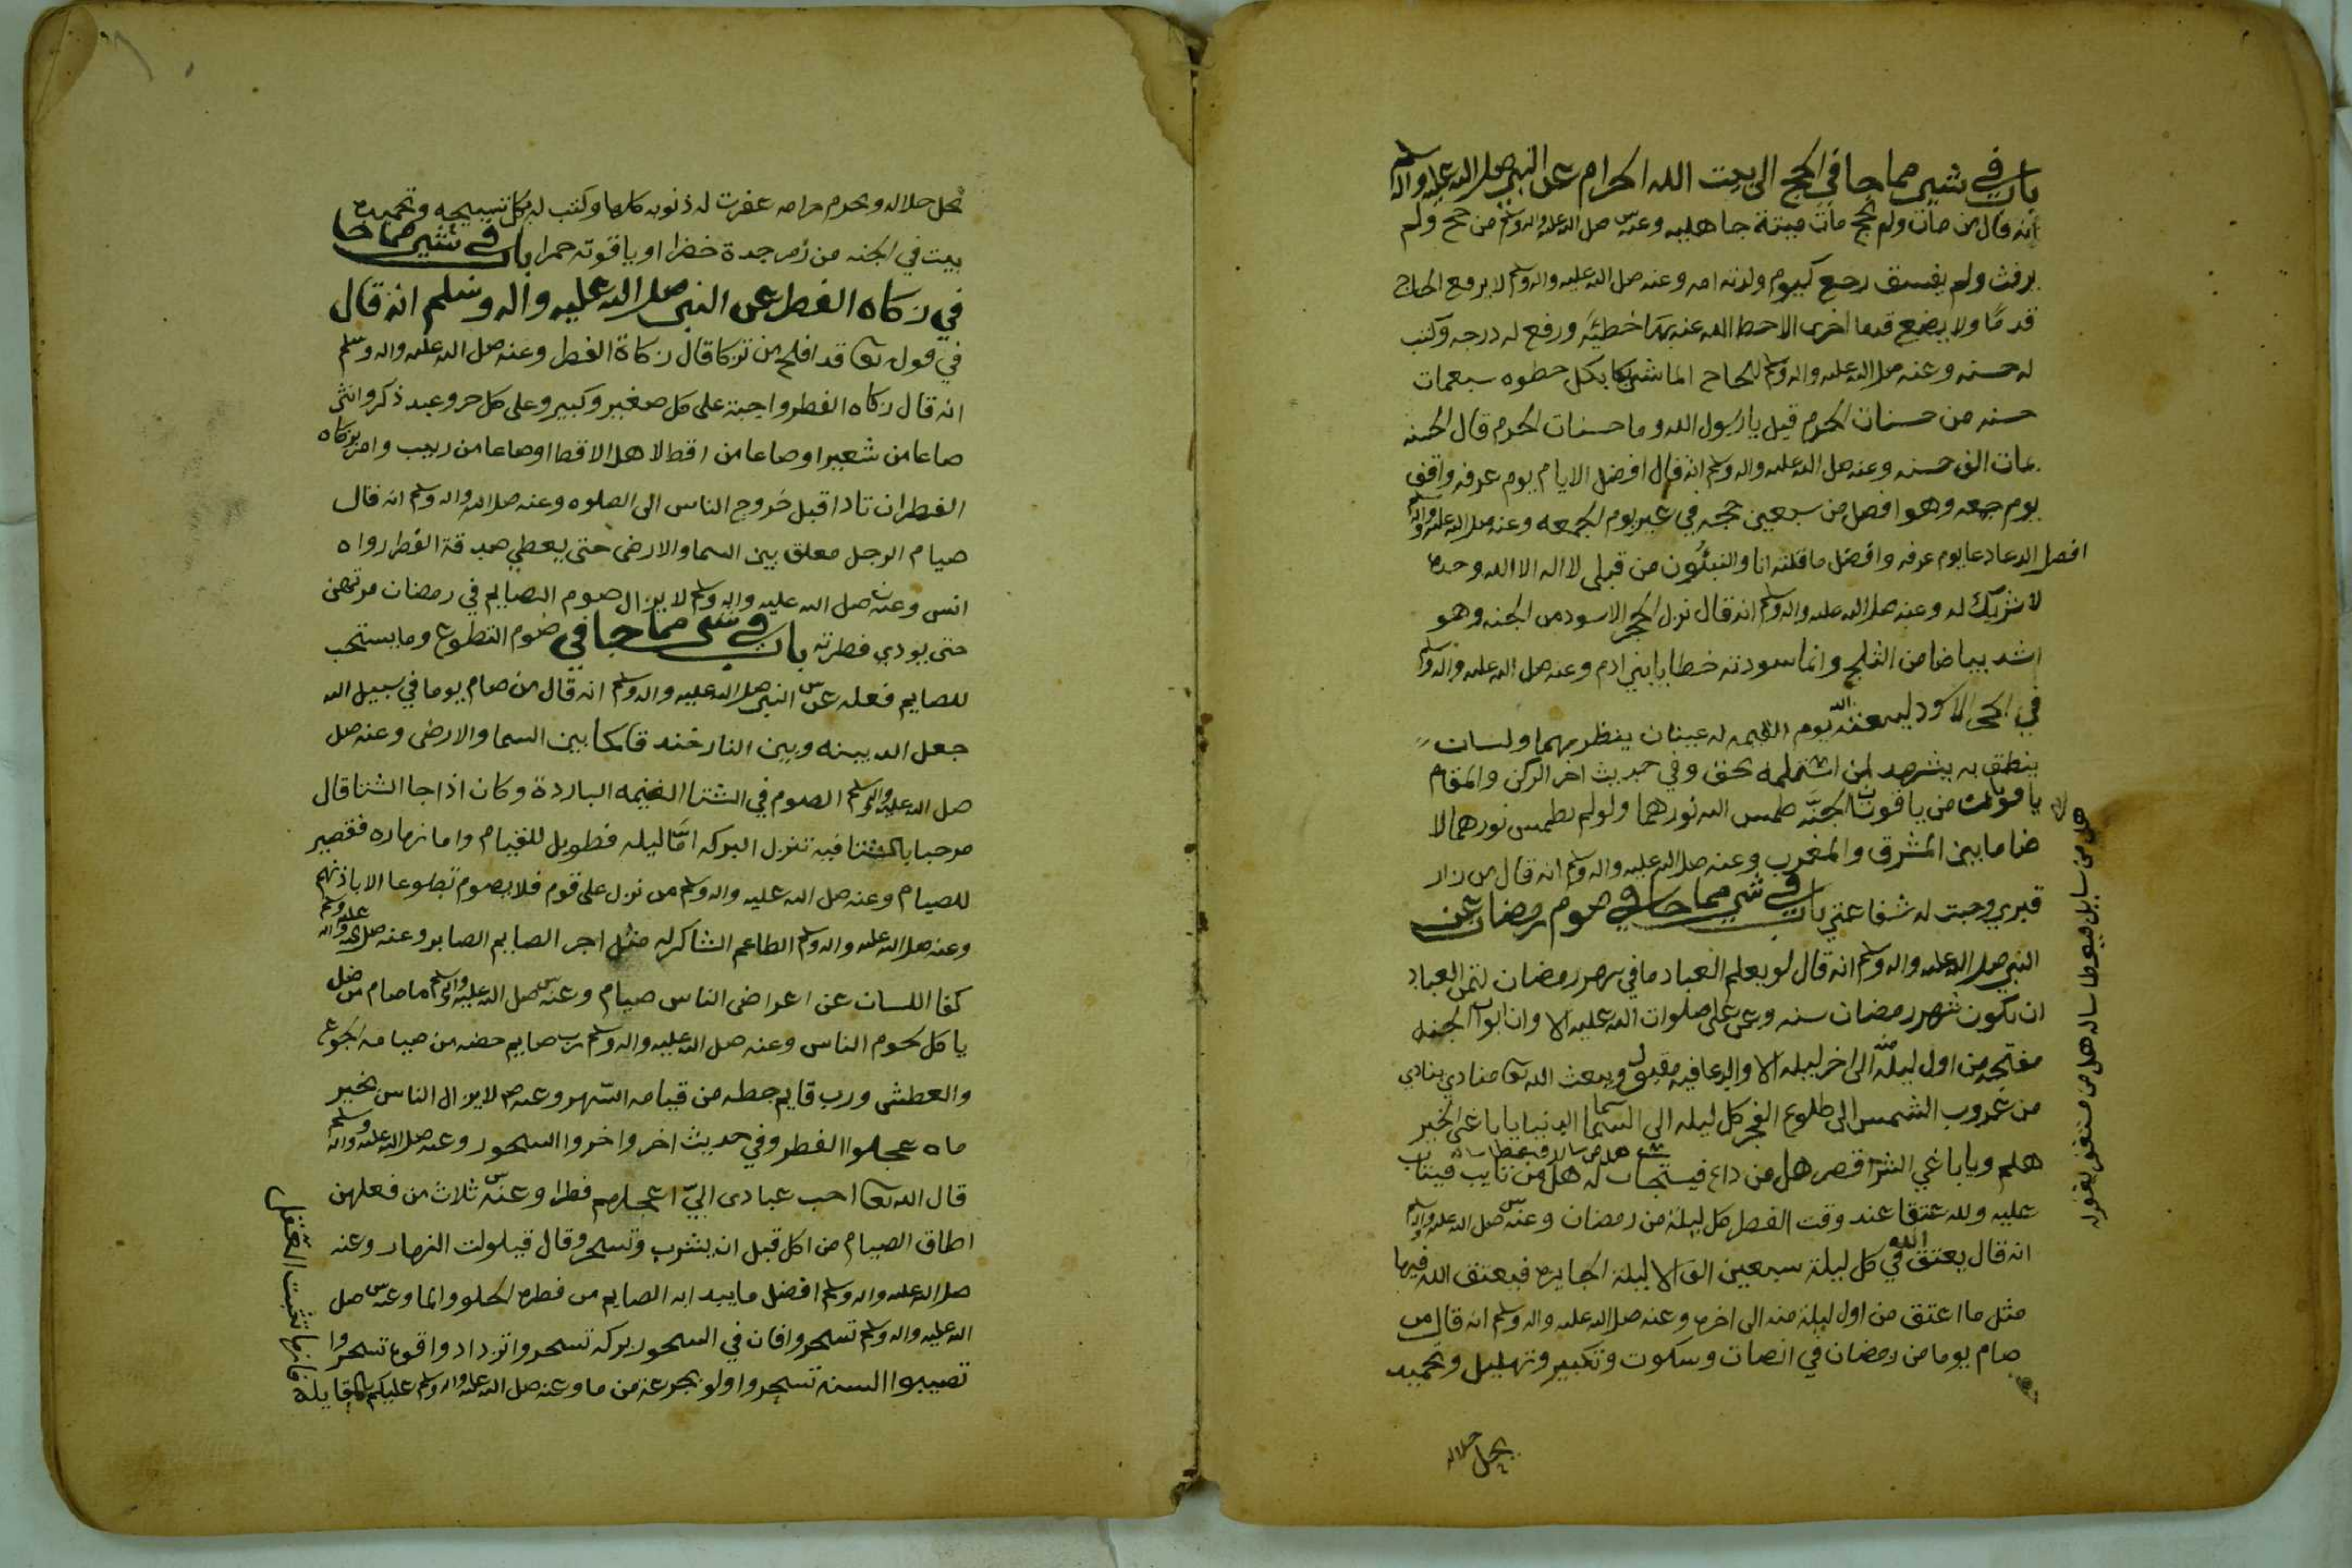 باب في شي مما جا في الحج الى بيت الله الحرام عن النبي صلى الله عليه واله وسلم
انه قال من مات ولم يحج مات ميتة جاهليه وعنه صلى الله عليه واله وسلم من حج ولم
يرفث ولم يفسق رجع كيوم ولدته امه وعنه صلى الله عليه واله وسلم لا يرفع الحاج
قدمًا ولا يضع قدما اخرى الا حط الله عنه بها خطيئه ورفع له درجه وكتب
له حسنه وعنه صلى الله عليه واله وسلم للحاج الماشي بكل خطوه سبعمات
حسنه من حسنات الحرم قيل يا رسول الله وما حسنات الحرم قال الحسنه
بمات الف حسنه وعنه صلى الله عليه واله وسلم انه قال افضل الايام يوم عرفه وافق
يوم جمعه وهو افضل من سبعين حجه في غير يوم الجمعه وعنه صلى الله عليه واله وسلم
افضل الدعا دعا يوم عرفه وافضل ما قلته انا والنبيُون من قبلي لا اله الا الله وحده
لا شريك له وعنه صلى الله عليه واله وسلم انه قال نزل الحجر الاسود من الجنه وهو
اشد بياضا من الثلج وانما سودته خطايا بني ادم وعنه صلى الله عليه واله وسلم
في الحجر الاسود ليبعثنه الله يوم القيمه له عينان ينظر بهما ولسان
ينطق به يشهد لمن استلمه بحق وفي حديث اخر الركن والمقام
ياقوتتان من ياقوت الجنه طمس الله نورهما ولو لم يطمس نورهما لا
ضا ما بين المشرق والمغرب وعنه صلى الله عليه واله وسلم انه قال من زار
قبري وجبت له شفاعتي باب في شي مما جا في صوم رمضان عن
النبي صلى الله عليه واله وسلم انه قال لو يعلم العباد ما في شهر رمضان لتمنى العباد
ان يكون شهر رمضان سنه وعن علي صلوات الله عليه الا وان ابواب الجنه
مفتحه من اول ليله منه الى اخر ليله الا والدعا فيه مقبول ويبعث الله تعا منادي ينادي
من غروب الشمس الى طلوع الفجر كل ليله الى السما الدنيا يا باغي الخير
هلم ويا باغي الشر اقصر هل من داع فيستجاب له هل من تايب فيتاب
عليه ولله عتقا عند وقت الفطر كل ليلة من رمضان وعنه صلى الله عليه واله وسلم
انه قال يعتق الله في كل ليلة سبعين الف الا ليلة الجايزه فيعتق الله فيها
مثل ما اعتق من اول ليلة منه الى اخره وعنه صلى الله عليه واله وسلم انه قال من
صام يوما من رمضان في انصات وسكوت وتكبير وتهليل وتحميد
يحل حلاله
هل من سايل فيعطا ساله هل من مستغفر يغفر له
يحل حلاله ويحرم حرامه غفرت له ذنوبه كلها وكتب له بكل تسبيحه وتحميده
بيت في الجنه من زمرجدة خضرا او ياقوته حمرا باب في شي مما جا
في زكاه الفطر عن النبي صلى الله عليه واله وسلم انه قال
في قوله تعا قد افلح من تزكا قال زكاة الفطر وعنه صلى الله عليه واله وسلم
انه قال زكاه الفطر واجبة على كل صغير وكبير وعلى كل حر وعبد ذكر وانثى
صاعا من شعير او صاعا من اقط لاهل الاقط او صاعا من زبيب وامر بزكاه
الفطر ان تادا قبل خروج الناس الى الصلوه وعنه صلى الله واله وسلم انه قال
صيام الرجل معلق بين السما والارض حتى يعطي صدقة الفطر رواه
انس وعنه صلى الله عليه واله وسلم لا يزال صوم الصايم في رمضان مرتهن
حتى يودي فطرته باب في شي مما جا في صوم التطوع وما يستحب
للصايم فعله عن النبي صلى الله عليه واله وسلم انه قال من صام يوما في سبيل الله
جعل الله بينه وبين النار خندقا كما بين السما والارض وعنه صل
صل الله عليه واله وسلم الصوم في الشتا الغنيمه الباردة وكان اذا جا الشتا قال
مرحبا بالشتا فيه تنزل البركه امّا ليله فطويل للقيام واما نهاره فقصير
للصيام وعنه صلى الله عليه واله وسلم من نزل على قوم فلا يصوم تطوعا الا باذنهم
وعنه صلى الله عليه واله وسلم الطاعم الشاكر له مثل اجر الصايم الصابر وعنه صلى الله عليه واله وسلم
كفا اللسان عن اعراض الناس صيام وعنه صلى الله عليه واله وسلم ما صام من ضل
ياكل لحوم الناس وعنه صلى الله عليه واله وسلم رب صايم حضه من صيامه الجوع
والعطش ورب قايم حطه من قيامه السهر وعنه صلى لا يزال الناس بخير
ماه عجلوا الفطر وفي حديث اخر واخروا السحور وعنه صلى الله عليه واله وسلم
قال الله تعا احب عبادى اليّ اعجلهم فطرا وعنه ثلاث من فعلهن
اطاق الصيام من اكل قبل ان يشرب وتسحر وقال قيلولت النهار وعنه
صلى الله عليه واله وسلم افضل ما يبدا به الصايم من فطره الحلو والما وعنه صل
الله عليه واله وسلم تسحروا فان في السحور بركه تسحروا تزدادوا قوه تسحروا
تصيبوا السنه تسحروا ولو بجرعه من ما وعنه صلى الله عليه واله وسلم عليكم بالقايلة
فانها تثبت العقل